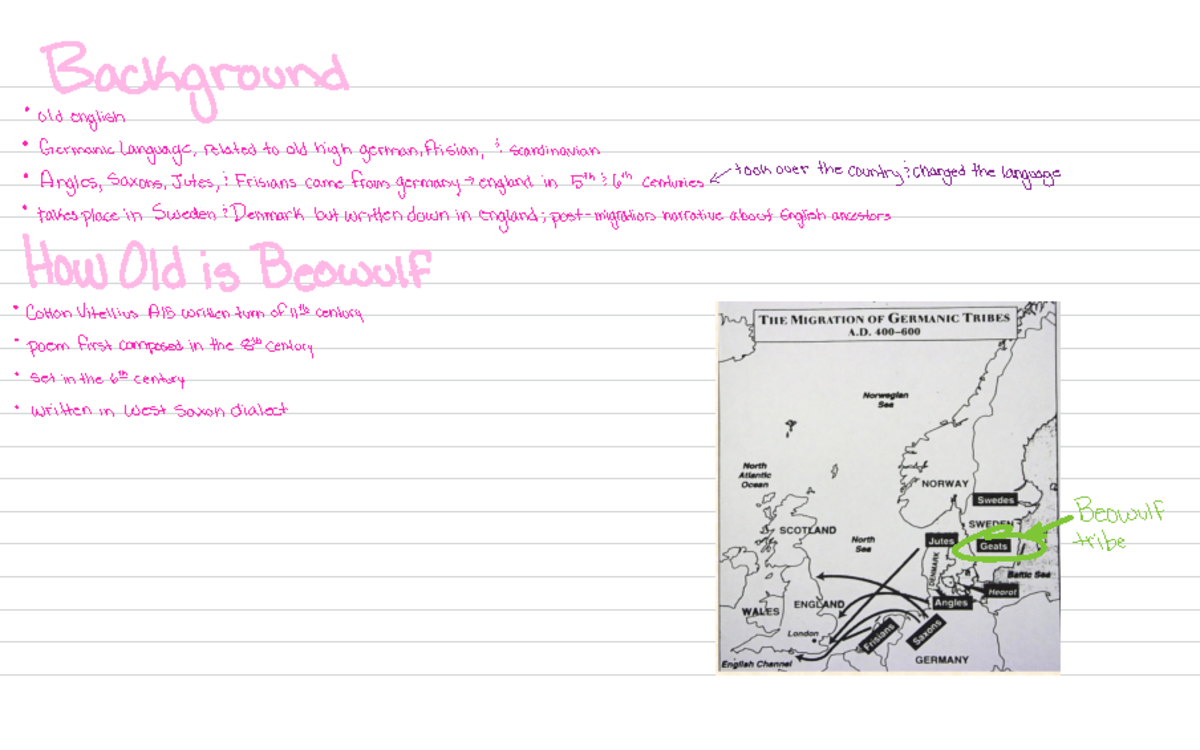 Background
• old english
• Germanic Language, related to old high german, Frisian, & Scandinavian
• Angles, Saxons, Jutes, & Frisians came from germany → england in 5th & 6th centuries ← took over the country & changed the language
• takes place in Sweden & Denmark but written down in england; post-migration narrative about English ancestors
How Old is Beowulf
• Cotton Vitellius A15 written turn of 11th century
• poem first composed in the 8th century
• set in the 6th century
• written in West Saxon dialect
THE MIGRATION OF GERMANIC TRIBES
A.D. 400–600
Norwegian
Sea
North
Atlantic
Ocean
NORWAY
Swedes
SCOTLAND
SWEDEN
North
Sea
Jutes
Geats
Beowulf
tribe
DENMARK
Baltic Sea
Heorot
WALES
ENGLAND
Angles
London
Frisians
Saxons
English Channel
GERMANY